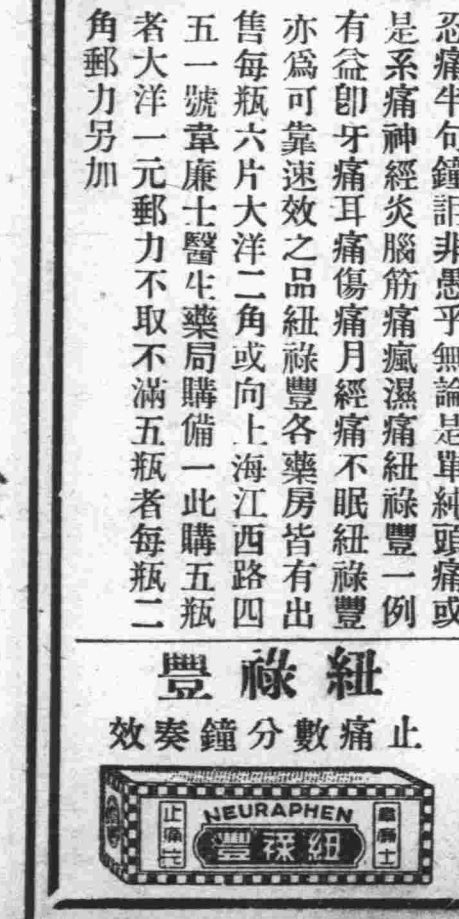 忍痛半句鐘詎非愚乎無論是單純頭痛或
是系痛神經炎腦筋痛瘋濕痛紐祿豐一例
有益卽牙痛耳痛傷痛月經痛不眠紐祿豐
亦爲可靠速效之品紐祿豐各藥房皆有出
售每瓶六片大洋二角或向上海江西路四
五一號韋廉士醫生藥局購備一此購五瓶
者大洋一元郵力不取不滿五瓶者每瓶二
角郵力另加
紐祿豐
止痛數分鐘奏效
NEURAPHEN
韋廉士
紐祿豐
止痛片